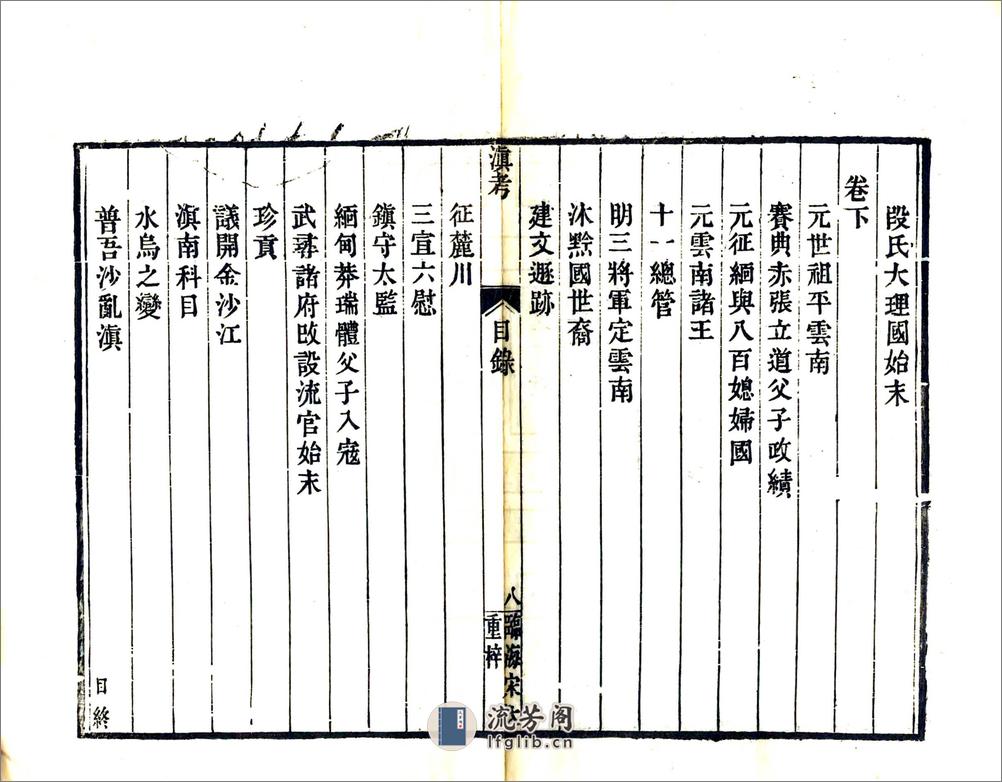 段氏大理國始末
卷下
元世祖平雲南
賽典赤張立道父子政績
元征緬與八百媳婦國
元雲南諸王
十一總管
明三將軍定雲南
沐黔國世裔
建文遯跡
滇考
目錄
八
臨海宋氏
重梓
征麓川
三宣六慰
鎮守太監
緬甸莽瑞體父子入寇
武尋諸府改設流官始末
珍貢
議開金沙江
滇南科目
水烏之變
普吾沙亂滇
目終
流芳阁
lfglib.cn